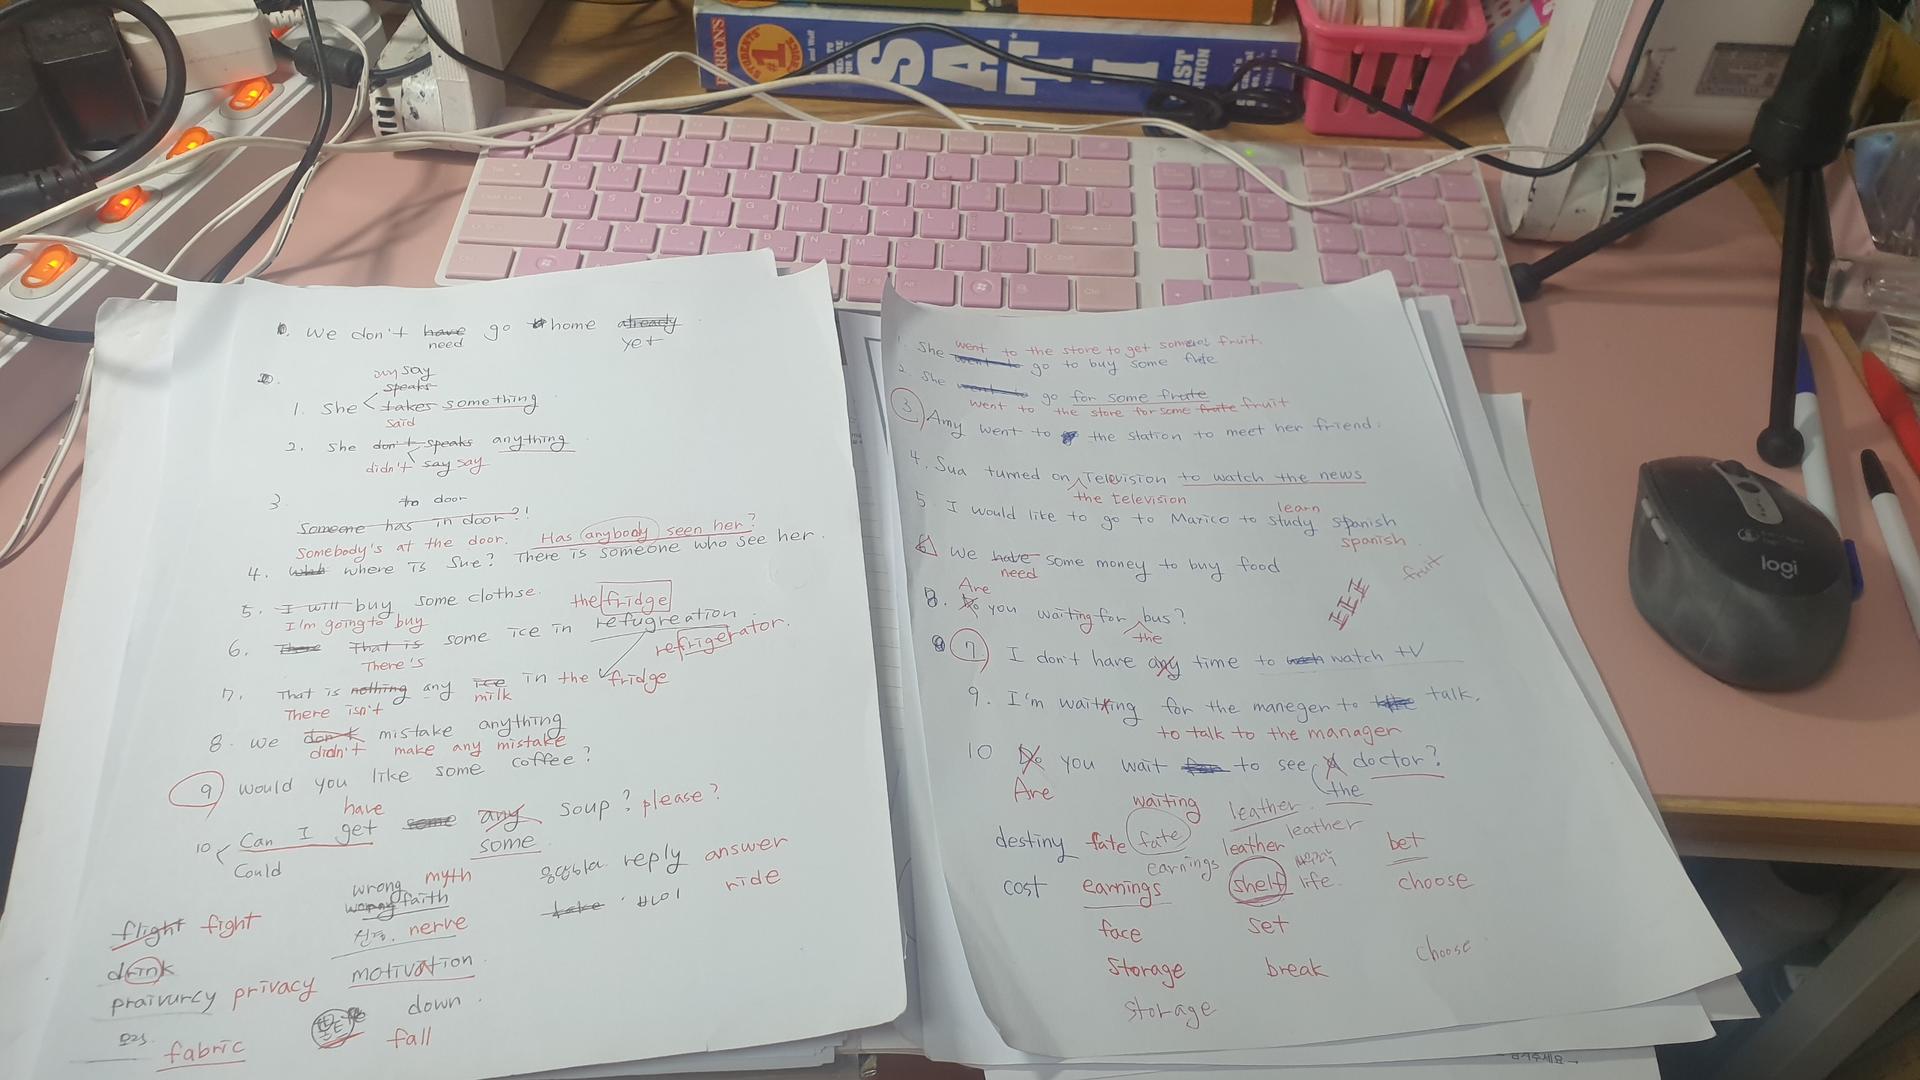 BARRON'S
STUDENTS' #1 CHOICE
SAT II
We don't have go home already
need
yet
say
speaks
1. She takes something
said
2. She don't speaks anything
didn't say say
3.
to door
Someone has in door?!
Somebody's at the door. Has anybody seen her?
4. where is Sue? There is someone who see her.
5. I will buy some clothse.
I'm going to buy
the fridge
6. That is some ice in refugreation.
There's
refrigerator.
7. That is nothing any ice in the fridge
There isn't
milk
8. We don't mistake anything
didn't make any mistake
9 Would you like some coffee?
have
10 Can I get some any soup? please?
Could
some
flight fight
drink
praivurcy privacy
fabric
wrong myth
faith
nerve
motivation
down.
fall
reply answer
take
ride
1. She went to the store to get some fruit.
went to go to buy some
2. She go for some frute
went to the store for some frute fruit
3 Amy went to the station to meet her friend.
4. Sua turned on Television to watch the news
the television
learn
5. I would like to go to Maxico to study spanish
spanish
6 We have some money to buy food
need
fruit
Are
8. Do you waiting for bus?
the
7 I don't have any time to watch tv
9. I'm waiting for the maneger to talk.
to talk to the manager
10 Do you wait for to see A doctor?
Are
waiting
the
leather.
destiny fate fate leather leather bet
earnings
cost earnings shelf life. choose
face set
storage break choose
storage
logi